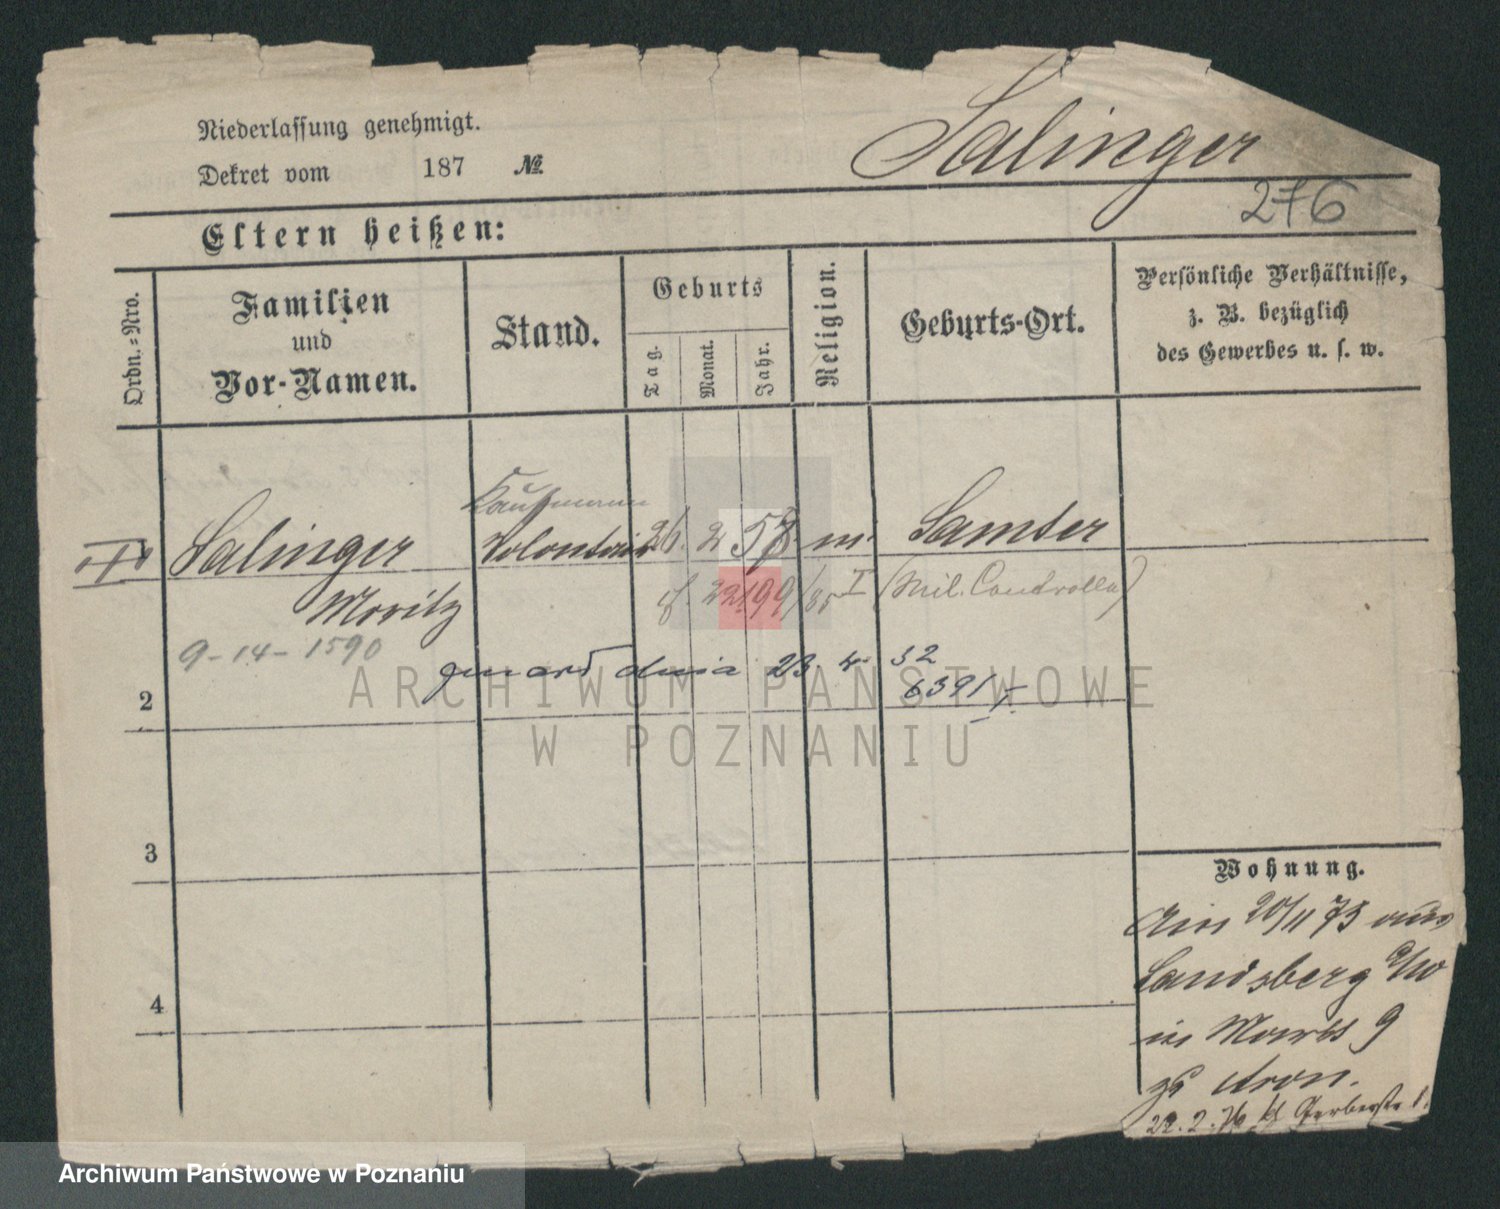 Niederlassung genehmigt.
Dekret vom 187 №
Salinger
276
Eltern heißen:
Ordn.-Nro.
Familien
und
Vor-Namen.
Stand.
Geburts
Tag.
Monat.
Jahr.
Religion.
Geburts-Ort.
Persönliche Verhältnisse,
z. B. bezüglich
des Gewerbes u. s. w.
Kaufmann
Salinger Volontair 26. 2 58 m. Samter
Moritz
I (Mil. Controlle)
9-14-1590
zmarł dnia 23. 4. 32
6391
2
3
4
Wohnung.
Am 20/11 75 aus
Landsberg a/W
in Markt 9
zu Aron.
22. 2. 76 kl Gerberstr
ARCHIWUM PAŃSTWOWE
W POZNANIU
Archiwum Państwowe w Poznaniu